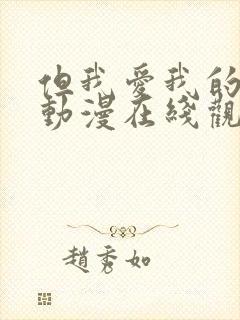 但我愛我的
動漫在綫觀
趙秀如